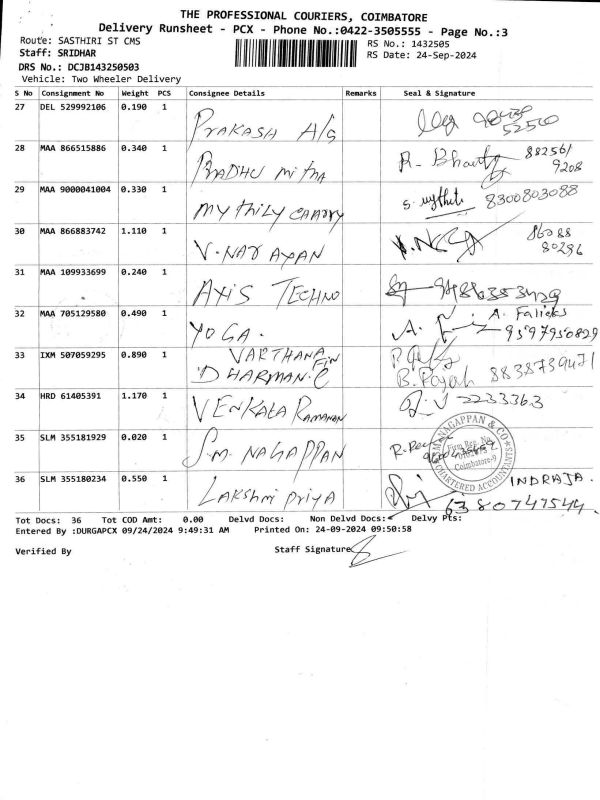 THE PROFESSIONAL COURIERS, COIMBATORE
Delivery Runsheet - PCX - Phone No.:0422-3505555 - Page No.:3
Route: SASTHIRI ST CMS
RS No.: 1432505
Staff: SRIDHAR
RS Date: 24-Sep-2024
DRS No.: DCJB143250503
Vehicle: Two Wheeler Delivery
S No Consignment No Weight PCS Consignee Details Remarks Seal & Signature
27 DEL 529992106 0.190 1 PRAKASH A/G
52500
28 MAA 866515886 0.340 1 PRADHU mitha R- 882561
9208
29 MAA 9000041004 0.330 1 MYTHILY S. 8300803088
30 MAA 866883742 1.110 1 V. NARAYAN 86088
80296
31 MAA 109933699 0.240 1 AXIS TECHNO
32 MAA 705129580 0.490 1 YOGA. A.
9597950829
33 IXM 507059295 0.890 1 VARTHANA FIN
DHARMAN. C B. 8838739471
34 HRD 61405391 1.170 1 VENKATA RAMANAN 2233363
35 SLM 355181929 0.020 1 S.M. NAGAPPAN
S.M. NAGAPPAN & CO
Firm Reg. No.
Coimbatore-9
CHARTERED ACCOUNTANTS
36 SLM 355180234 0.550 1 LAKSHMI PRIYA INDRAJA.
6380747544.
Tot Docs: 36 Tot COD Amt: 0.00 Delvd Docs: Non Delvd Docs: Delvy Pts:
Entered By :DURGAPCX 09/24/2024 9:49:31 AM Printed On: 24-09-2024 09:50:58
Verified By Staff Signature